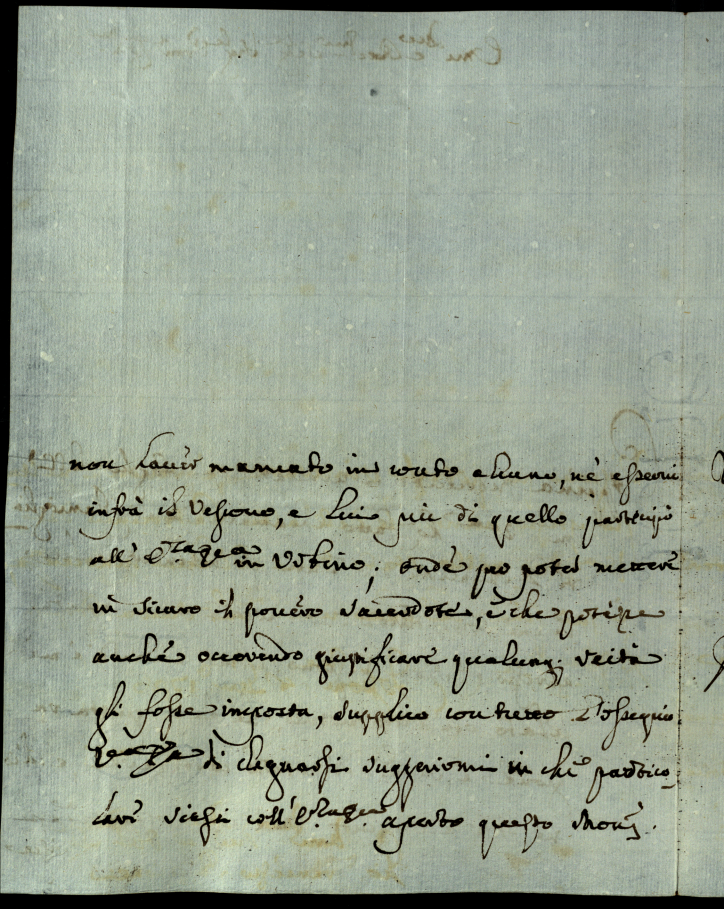 non haver mancato in conto alcuno, nè esservi
infrà il Vescovo, e lui più di quello partecipò
all' in Urbino; onde per poter mettere
in sicuro il povero Sacerdote, e che potesse
anche occorrendo giustificare qualunq; reità
gli fosse imposta, supplico con tutto l'ossequio
di degnarsi suggerirmi in che partico-
lari siasi coll' aperto questo Mons.